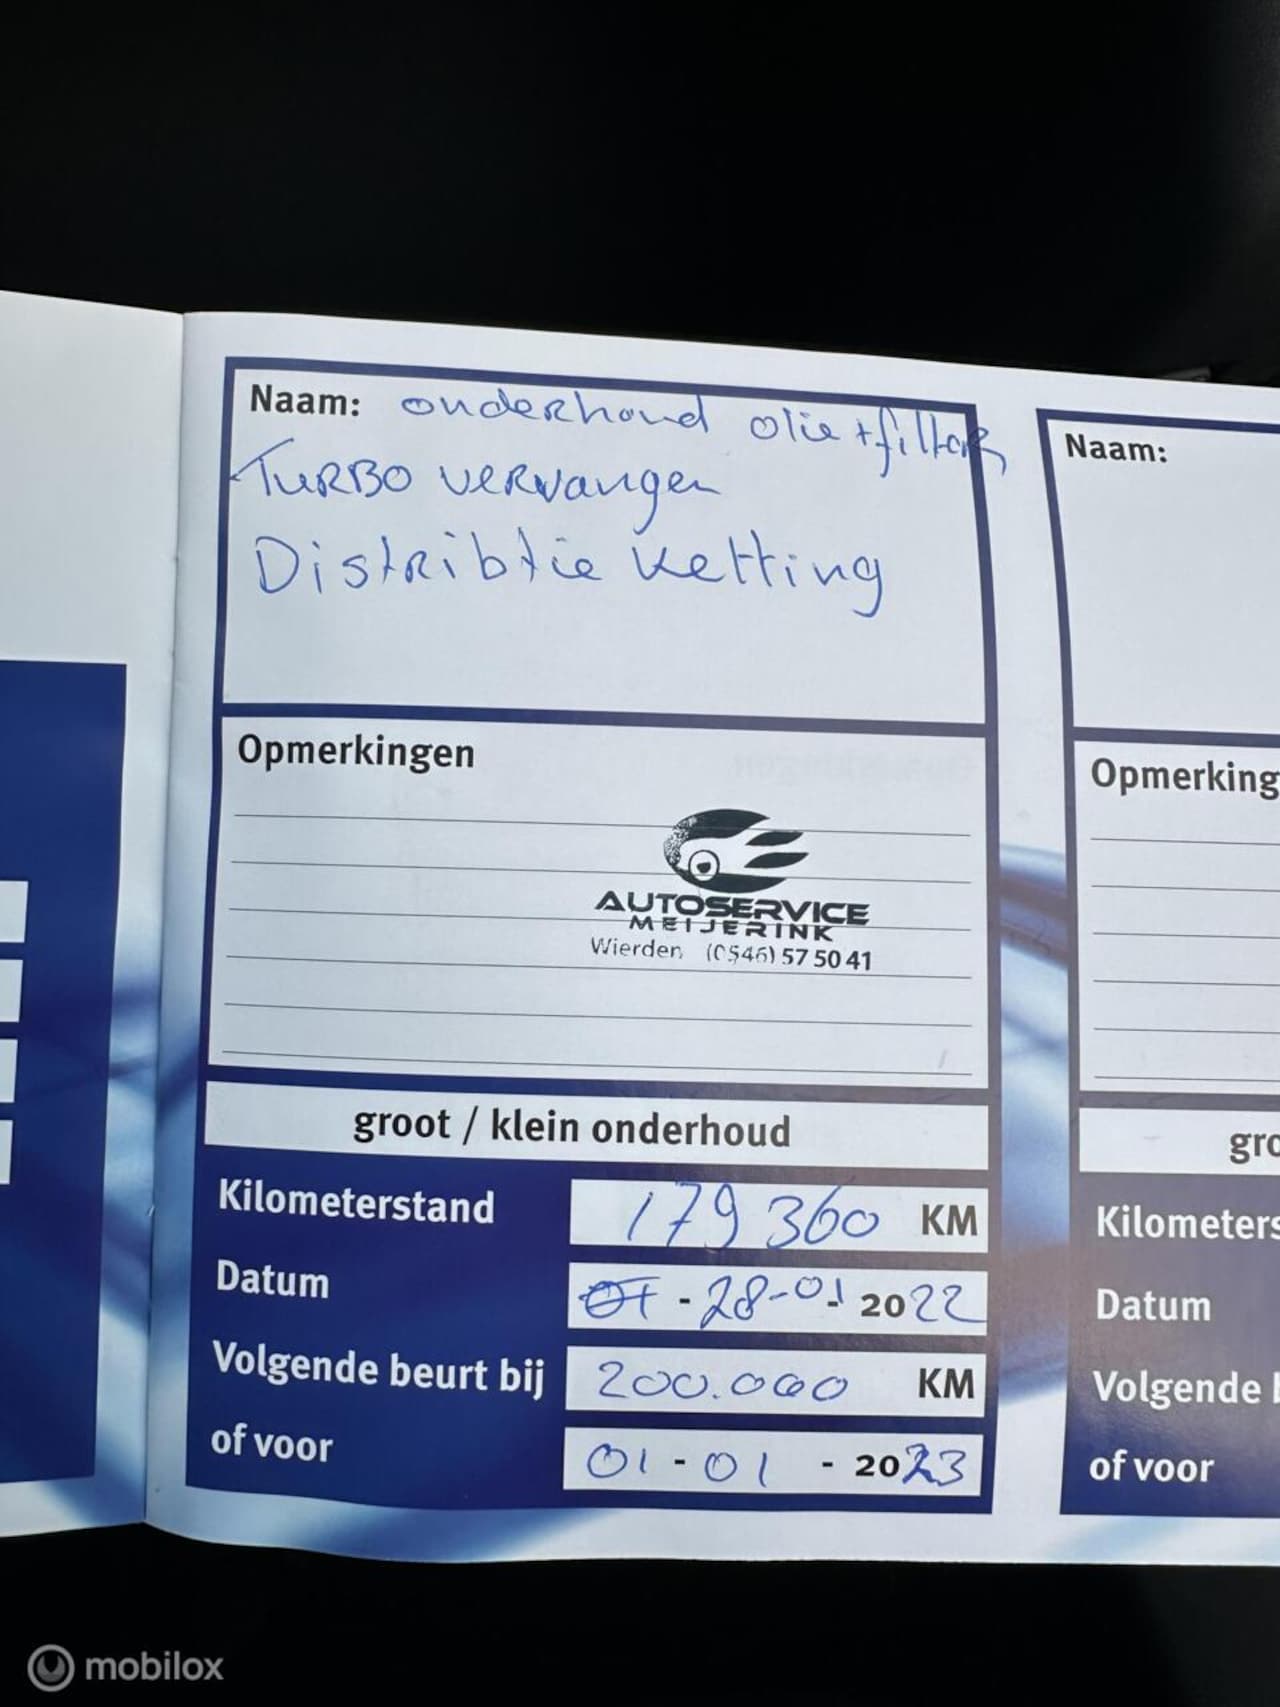 Naam: onderhoud olie+filters
TURBO vervangen
Distribtie ketting
Opmerkingen
AUTOSERVICE
MEIJERINK
Wierden (0546) 57 50 41
groot / klein onderhoud
Kilometerstand 179360 KM
Datum - 28-01- 2022
Volgende beurt bij 200.000 KM
of voor 01 - 01 - 2023
Naam:
Opmerking
gro
Kilometers
Datum
Volgende
of voor
mobilox